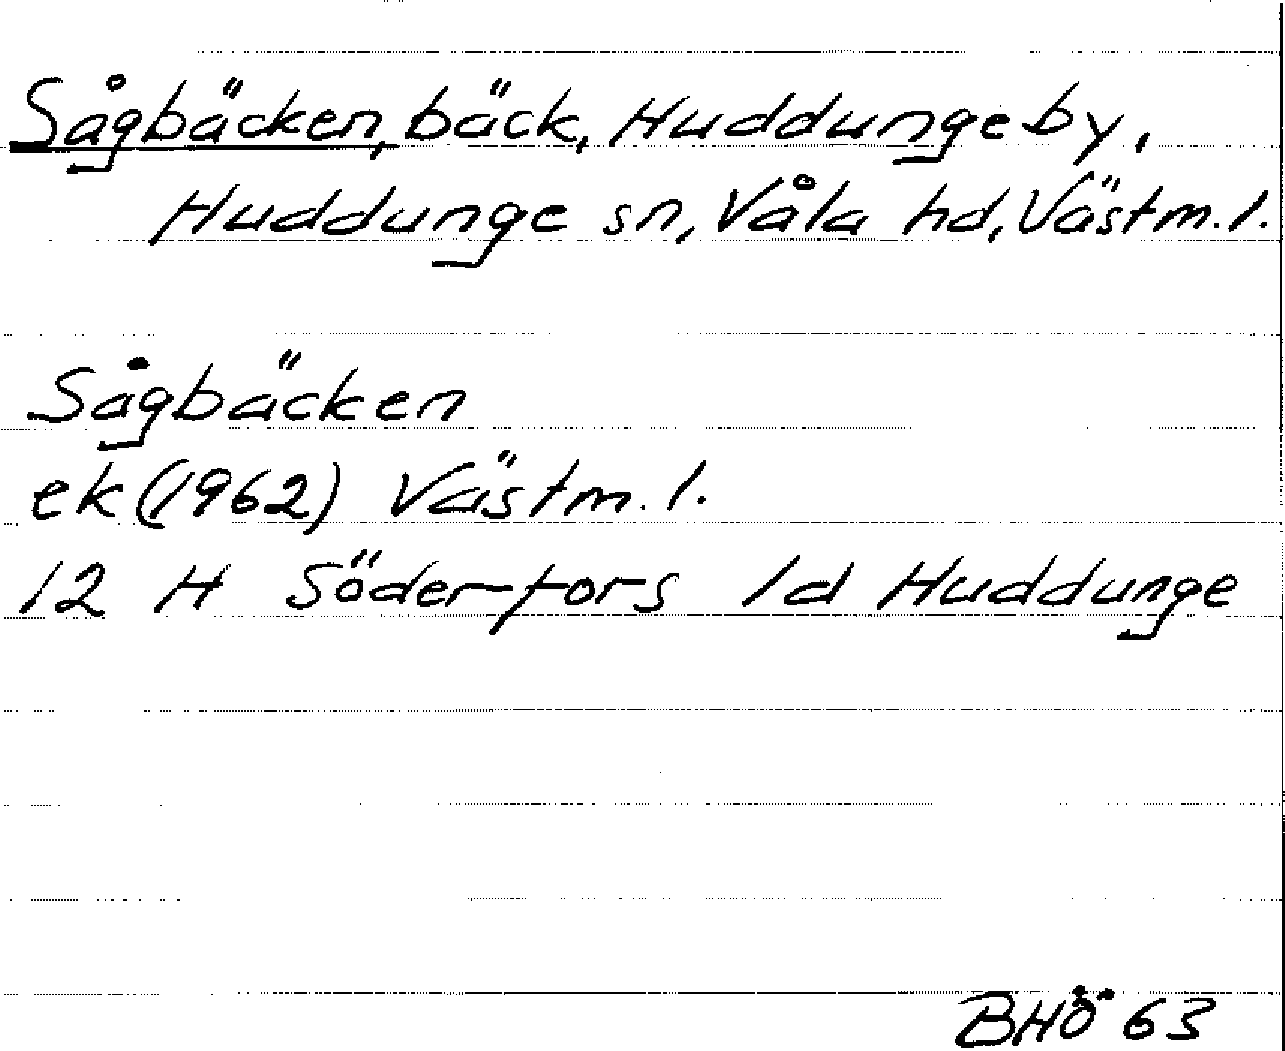 Sågbäcken, bäck, Huddungeby,
Huddunge sn, Våla hd, Västm.l.
Sågbäcken
ek (1962) Västm.l.
12 H Söderfors 1d Huddunge
BHÖ 63